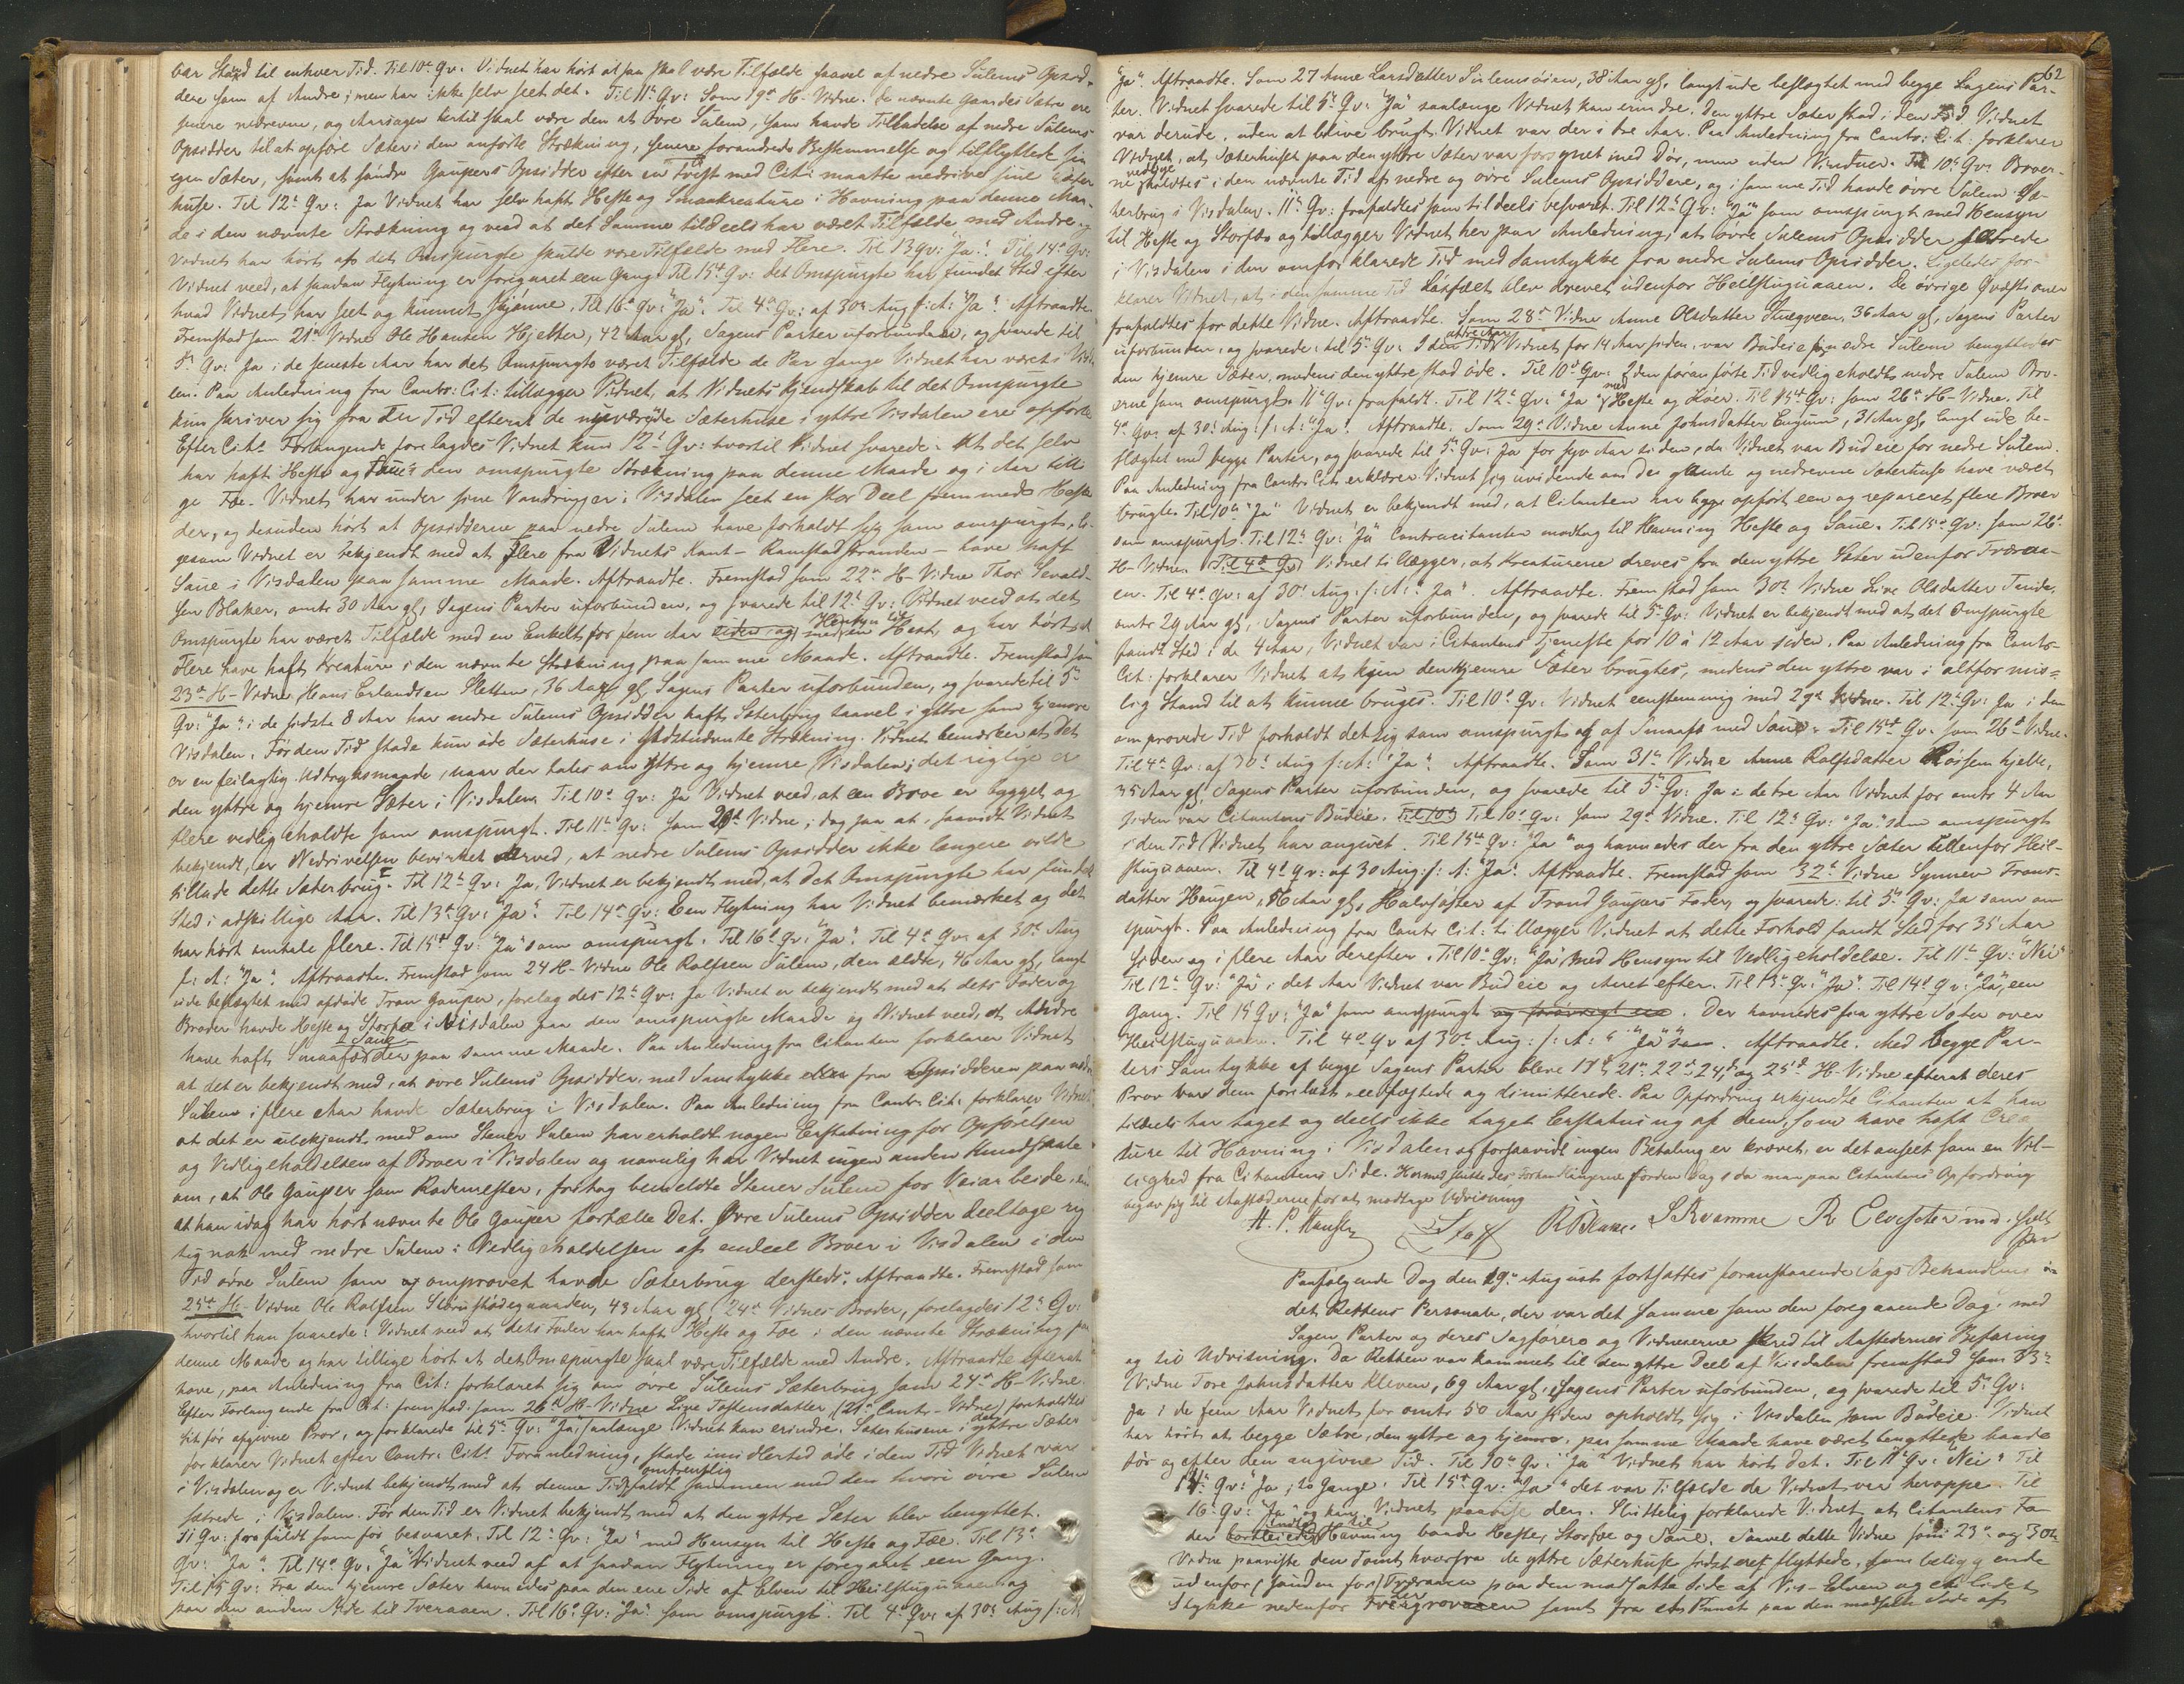 bar Stand til enhver Tid. Til 10de Qv: Vidnet har hørt at saa skal være Tilfælde saavel af nedre Sulems Opsid-
dere som af Andre; men har ikke selv seet det. Til 11te Qv: Som 19de H-Vidne. De nævnte Gaardes Sætre ere
senere nedrevne, og Aarsagen hertil skal være den at øvre Sulem, som havde Tilladelse af nedre Sulems
Opsidder til at opføre Sæter i den anførte Strækning, senere forandrede Bestemmelse og tilflyttede sin
egen Sæter, samt at søndre Gaupers Opsidder efter en Trift med Cit: maatte nedrive sine Sæter
huse. Til 12te Qv: Ja Vidnet har selv haft Heste og Smaakreature i Havning paa denne Maa-
de i den nævnte Strækning og veed at det Samme tildeels har været Tilfælde med Andre, og
Vidnet har hørt at det Omspurgte skulde være Tilfælde med Flere. Til 13 Qv: "Ja". Til 14de Qv:
Vidnet veed, at saadan Flytning er foregaaet een Gang. Til 15de Qv: det Omspurgte har fundet Sted efter
hvad Vidnet har seet og kunnet skjønne. Til 16de Qv: "Ja". Til 4de Qv: af 30te Aug f: A: "Ja". Aftraadte.
Fremstod som 21de Vidne Ole Hansen Hjeltar, 42 Aar gl, Sagens Parter uforbunden, og svarede til
5te Qv: Ja i de seneste Aar har det Omspurgte været Tilfælde de Par Gange Vidnet har været i Visda-
len. Paa Anledning fra Contra Cit: tillægger Vidnet, at Vidnets Kjendskab til det Omspurgte
kun skriver sig fra den Tid efterat de nuværende Sæterhuse i yttre Visdalen ere opførte.
Efter Cits Forlangende forelagdes Vidnet kun 12te Qv: hvortil Vidnet svarede: At det selv
har haft Heste og Saue i den omspurgte Strækning paa denne Maade og i Aar tilli-
ge Fæ. Vidnet har under sine Vandringer i Visdalen seet en stor Deel fremmede Heste
der, og desuden hørt at Opsidderne paa nedre Sulem have forholdt sig som omspurgt, li-
gesom Vidnet er bekjendt med at Flere fra Vidnets Kant – Ramstadstranden – have haft
Saue i Visdalen paa samme Maade. Aftraadte. Fremstod som 22de H-Vidne Thor Sevald-
sen Blaker, omtr 30 Aar gl, Sagens Parter uforbunden, og svarede til 12te Qv: Vidnet veed at det
Omspurgte har været Tilfælde med en Enkelt for fem Aar siden, og med Hensyn til en Hest, og har hørt at
Flere have haft Kreature i den nævnte Strækning paa samme Maade. Aftraadte. Fremstod som
23de H-Vidne Hans Erlandsen Sletten, 36 Aar gl, Sagens Parter uforbunden, og svarede til 5te
Qv: "Ja" i de sidste 8 Aar har nedre Sulems Opsidder haft Sæterbrug saavel i yttre som hjemre
Visdalen. Før den Tid stode kun øde Sæterhuse i sidstnævnte Strækning. Vidnet bemærker at det
er en feilagtig Udtryksmaade, naar der tales om yttre og hjemre Visdalen; det rigtige er
den yttre og hjemre Sæter i Visdalen. Til 10de Qv: Ja Vidnet veed, at een Broe er bygget, og
flere vedligeholdte som omspurgt. Til 11te Qv: Som 20de Vidne; dog saa at, saavidt Vidnet
bekjendt, er Nedrivelsen bevirket derved, at nedre Sulems Opsidder ikke længere vilde
tillade dette Sæterbrug. Til 12te Qv: Ja, Vidnet er bekjendt med, at det Omspurgte har fundet
Sted i adskillige Aar. Til 13de Qv: "Ja". Til 14de Qv: Een Flytning har Vidnet bemærket og det
har hørt omtale flere. Til 15de Qv: "Ja" som omspurgt. Til 16de Qv: "Ja". Til 4de Qv: af 30te Aug
f: A: "Ja". Aftraadte. Fremstod som 24 H-Vidne Ole Rolfsen Sulem, den ældre, 46 Aar gl, langt
ude beslægtet med afdøde Tron Gauper, forelagdes 12te Qv: Ja Vidnet er bekjendt med at dets Fader og
Broder havde Heste og Storfæ i Visdalen paa den omspurgte Maade og Vidnet veed, at Andre
have haft Smaafæ & Saue der paa samme Maade. Paa Anledning fra Citanten forklarer Vidnet
at det er bekjendt med, at øvre Sulems Opsidder, med Samtykke fra Opsidderen paa nedre
Sulem i flere Aar havde Sæterbrug i Visdalen. Paa Anledning fra Contra Cit: forklarer Vidnet
at det er ubekjendt med om Stener Sulem har erholdt nogen Erstatning for Opførelsen
og Vedligeholdelsen af Broer i Visdalen og navnlig har Vidnet ingen anden Kundskab
om, at Ole Gauper som Rodemester, fratog bemeldte Stener Sulem for Veiarbeide, end
at han idag har hørt nævnte Ole Gauper fortælle det. Øvre Sulems Opsidder deeltoge rig-
tig nok med nedre Sulem i Vedligeholdelsen af endeel Broer i Visdalen i den
Tid øvre Sulem som omprovet havde Sæterbrug dersteds. Aftraadte. Fremstod som
25de H-Vidne Ole Rolfsen Slønishødegaarden, 43 Aar gl, 24de Vidnes Broder, forelagdes 12te Qv:
hvortil han svarede: Vidnet veed at dets Fader har haft Heste og Fæ i den nævnte Strækning paa
denne Maade og har tillige hørt at det Omspurgte skal være Tilfælde med Andre. Aftraadte efterat
have, paa Anledning fra Cit: forklaret sig om øvre Sulems Sæterbrug som 24de H-Vidne.
Efter Forlangende fra Cit: fremstod som 26de H-Vidne Live Tostensdatter (21de Contra-Vidne) forholdtes
sit før afgivne Prov, og forklarede til 5te Qv: "Ja", saalænge Vidnet kan erindre. Sæterhusene i den yttre Sæter
forklarer Vidnet efter Contra Cits Foranledning, stode imidlertid øde i den Tid Vidnet var
i Visdalen og er Vidnet bekjendt med at denne Tid omtrentlig faldt sammen med den hvori øvre Sulem
sætrede i Visdalen. Før den Tid er Vidnet bekjendt med at den yttre Sæter blev benyttet.
11 Qv: frafaldt som før besvaret. Til 12te Qv: "Ja" med Hensyn til Heste og Fæ. Til 13de
Qv: "Ja". Til 14de Qv: "Ja" Vidnet veed af at saadan Flytning er foregaaet een Gang.
Til 15 Qv: Fra den hjemre Sæter havnedes paa den ene Side af Elven til Heilstuguaaen og
paa den anden Side til Tveraaen. Til 16de Qv: "Ja" som omspurgt. Til 4de Qv: af 30te Aug f: A:
62
"Ja". Aftraadte. Som 27 Anne Larsdatter Sulemsøien, 38 Aar gl, langt ude beslægtet med begge Sagens Par-
ter. Vidnet svarede til 5te Qv: "Ja" saalænge Vidnet kan erindre. Den yttre Sæter stod i den Tid Vidnet
var derude, uden at blive brugt. Vidnet var der i tre Aar. Paa Anledning fra Contra Cit: forklarer
Vidnet, at Sæterhuset paa den yttre Sæter var forsynet med Dør, men uden Vinduer. Til 10de Qv: Broer-
ne vedligeholdtes i den nævnte Tid af nedre og øvre Sulems Opsiddere, og i samme Tid havde øvre Sulem Sæ-
terbrug i Visdalen. 11te Qv: frafaldtes som tildeels besvaret. Til 12te Qv: "Ja" som omspurgt med Hensyn
til Heste og Storfæ og tillægger Vidnet her paa Anledning, at øvre Sulems Opsidder sætrede
i Visdalen i den omforklarede Tid med Samtykke fra nedre Sulems Opsidder. Ligeledes for-
klarer Vidnet, at i den samme Tid Løsfæet blev drevet udenfor Heilstuguaaen. De øvrige Qvæstioner
frafaldtes for dette Vidne. Aftraadte. Som 28de Vidne Anne Olsdatter Stuegveen, 36 Aar gl, Sagens Parter
uforbunden, og svarede: til 5te Qv: I den Tid Vidnet, for 14 Aar siden, var Budeie paa nedre Sulem benyttedes
den hjemre Sæter, medens den yttre stod øde. Til 10de Qv: I den foranførte Tid vedligeholdtes nedre Sulem Bro-
erne som omspurgt. 11te Qv: frafaldt. Til 12te Qv: "Ja" med Heste og Køer. Til 15de Qv: som 26de H-Vidne. Til
4de Qv: af 30te Aug: f: A: "Ja". Aftraadte. Som 29de Vidne Anne Johnsdatter Eugum, 31 Aar gl, langt ude be-
slægtet med begge Parter, og svarede til 5te Qv: Ja for syv Aar siden, da Vidnet var Budeie for nedre Sulem.
Paa Anledning fra Contra Cit: erklærer Vidnet sig uvidende om De gamle og nedrevne Sæterhuse have været
brugte. Til 10de "Ja" Vidnet er bekjendt med, at Citanten har opført een og repareret flere Broer
som omspurgt. Til 12te Qv: "Ja" Contracitanten modtog til Havning Heste og Saue. Til 15de Qv: som 26de
H-Vidne. Til 4de Qv: Vidnet tillægger, at Kreaturene dreves fra den yttre Sæter udenfor Tværaa-
en. Til 4de Qv: af 30te Aug: f: A: "Ja". Aftraadte. Fremstod som 30te Vidne Live Olsdatter Tande,
omtr 29 Aar gl, Sagens Parter uforbunden, og svarede til 5te Qv: Vidnet er bekjendt med at det Omspurgte
fandt Sted i de 4 Aar, Vidnet var i Citantens Tjeneste for 10 à 12 Aar siden. Paa Anledning fra Contra-
Cit: forklarer Vidnet at kun den hjemre Sæter brugtes, medens den yttre var i altfor mis-
lig Stand til at kunne bruges. Til 10de Qv: Vidnet eenstemmig med 29de Vidne. Til 12te Qv: Ja i den
omprovede Tid forholdt det sig som omspurgt og af Smaafæ med Saue. Til 15de Qv: som 26de Vidne.
Til 4de Qv: af 30te Aug f: A: "Ja". Aftraadte. Som 31te Vidne Anne Rolfsdatter Røisemhjelle,
35 Aar gl, Sagens Parter uforbunden, og svarede til 5te Qv: Ja i de tre Aar Vidnet for omtr 4 Aar
siden var Citantens Budeie. Til 10de Til 10de Qv: som 29de Vidne. Til 12te Qv: "Ja" som omspurgt
i den Tid Vidnet har angivet. Til 15de Qv: "Ja" og havnedes der fra den yttre Sæter udenfor Heil-
stuguaaen. Til 4de Qv: af 30 Aug: f: A: "Ja". Aftraadte. Fremstod som 32te Vidne Synnev Trons-
datter Haugen, Aar gl, Halvsøster af Trond Gaupers Fader, og svarede: til 5te Qv: Ja som om
spurgt. Paa Anledning fra Contra Cit: tillægger Vidnet at dette Forhold fandt Sted for 35 Aar
siden og i flere Aar derefter. Til 10de Qv: "Ja", med Hensyn til Vedligeholdelse. Til 11te Qv: "Nei"
Til 12te Qv: "Ja" i det Aar Vidnet var Budeie og Aaret efter. Til 13de Qv: "Ja". Til 14de Qv: "Ja", een
Gang. Til 15 Qv: "Ja" som omspurgt. Der havnedes fra yttre Sæter over
Heilstuguaaen. Til 4de Qv af 30te Aug: f: A: "Ja". Aftraadte. Med begge Par-
ters Samtykke af begge Sagens Parter bleve 17de, 21de, 22de, 24de og 25de H-Vidne efterat deres
Prov var dem forelæst eedfæstede og dimitterede. Paa Opfordring erkjendte Citanten at han
tildeels har taget og deels ikke taget Erstatning af dem, som have haft Crea
ture til Havning i Visdalen og forsaavidt ingen Betaling er krævet, er det anseet som en Vil-
lighed fra Citantens Side. Hermed sluttedes Forhandlingerne for den Dag, da man paa Citantens Opfordring
begav sig til Aastæderne for at modtage Udvisning
H. P. Hansen Stoff R Blaker. S Kvamme R Elvesæter m. f. P.
Paafølgende Dag den 19de August fortsattes foranstaaende Sags Behandling i
det Rettens Personale, der var det samme som den foregaaende Dag, med
Sagens Parter og deres Sagførere og Vidneserne skred til Aastedernes Befaring
og til Udvisning. Da Retten var kommet til den yttre Deel af Visdalen fremstod som 33te
Vidne Tore Johnsdatter Kleven, 69 Aar gl, Sagens Parter uforbunden, og svarede til 5te Qv:
Ja i de fem Aar Vidnet for omtr 50 Aar siden opholdt sig i Visdalen som Budeie. Vidnet
har hørt at begge Sætre, den yttre og hjemre, paa samme Maade have været benyttede baade
før og efter den angivne Tid. Til 10de Qv: "Ja" Vidnet har hørt det. Til 11te Qv: "Nei" Til
14de Qv: "Ja", 2o Gange. Til 15de Qv: "Ja" det var Tilfælde da Vidnet var heroppe. Til
16de Qv: "Ja" og kan Vidnet paavise dem. Slutteligen forklarede Vidnet at Citantens Fa-
der til Havning baade Heste, Storfæ og Saue. Saavel dette Vidne som 23de og 30te
Vidne paaviste den Tomt hvorfra de yttre Sæterhuse sidst ere flyttede, som beliggende
udenfor (sønden for) Tværaaen paa den modsatte Side af Vis-Elven og et lidet
Stykke nedenfor samt fra et Punct paa den modsatte Side af